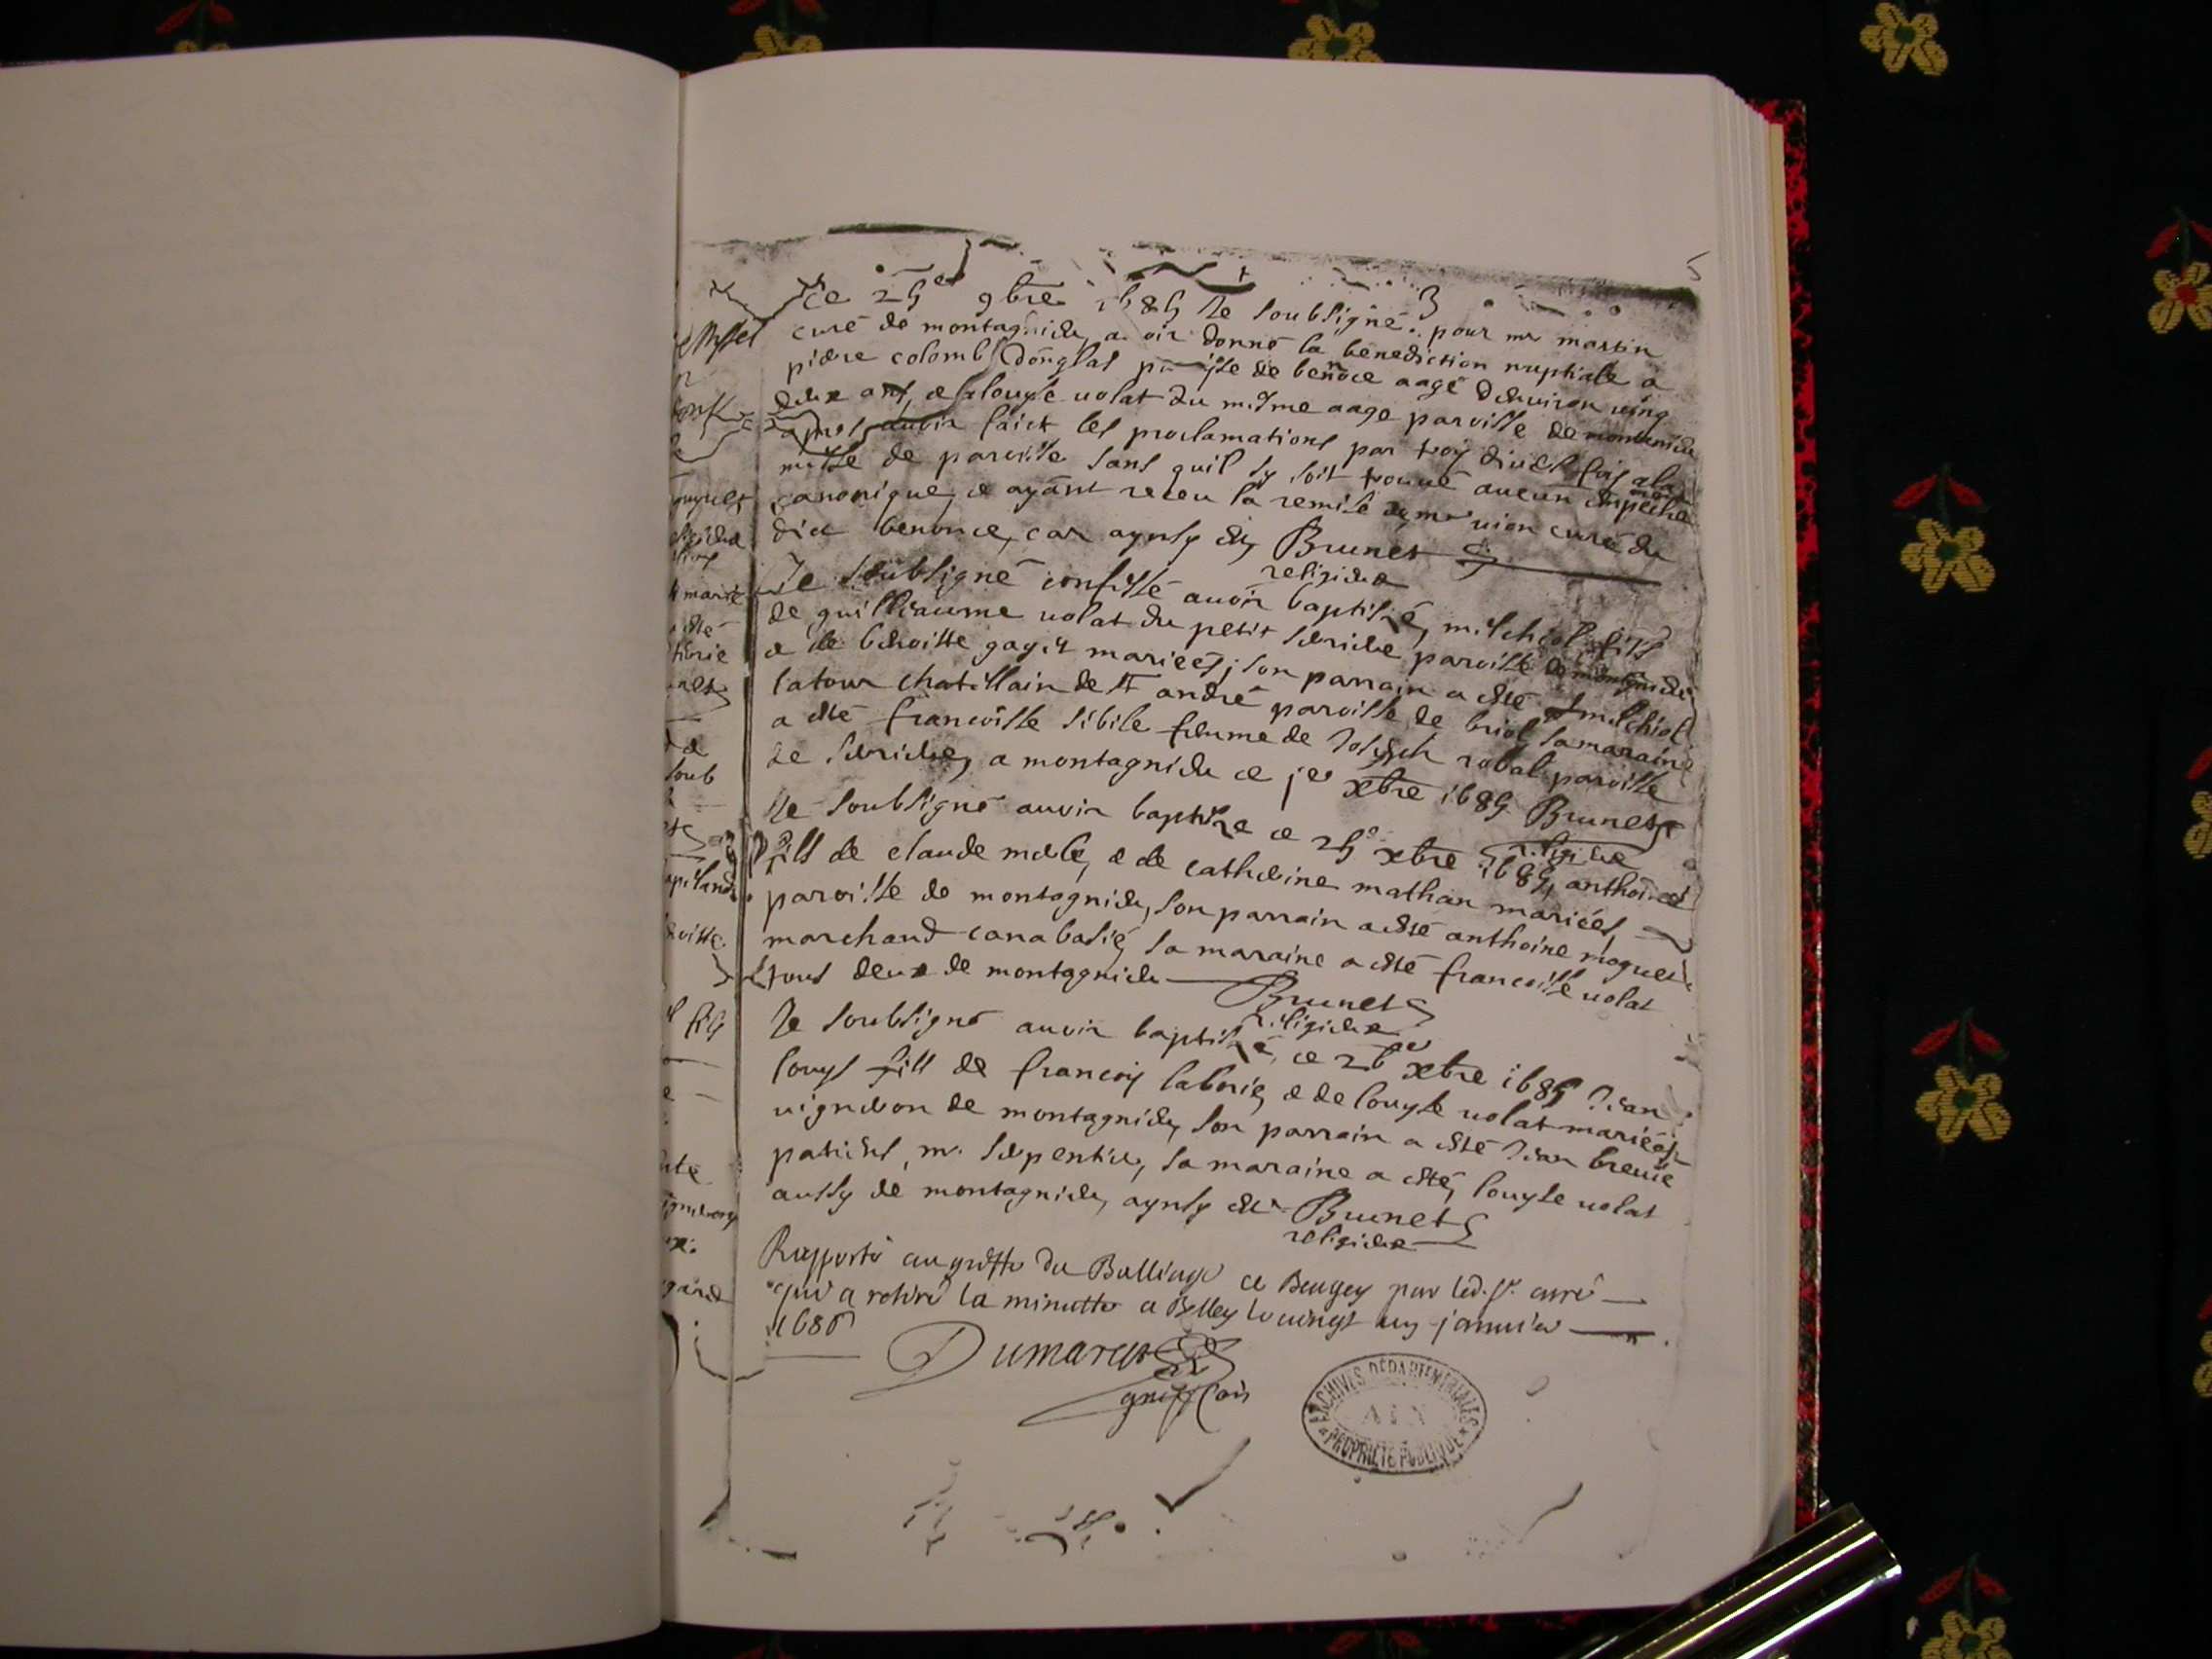 ce 25e 9bre 1685 Je soubsigné pour mr martin
curé de montagnieu, avoir donné la benediction nuptiale a
pierre colomb paroisse de benonce aagé denviron ving
deux ans, et a louyse volat du mesme aage paroisse de montagnieu
apres avoir faict les proclamations par trois divers fois a la
messe de paroisse sans quil sy soit trouvé aucun empeche
canonique, et ayant receu la remise de mr vion curé du
dict benonce, car aynsy est, Brunet
religieux
Je soubsigné confesse avoir baptisé, melchiol fils
de guilleaume volat du petit serieu paroisse de montagnieu
et de benoitte gayet mariées; son parrain a esté melchiol
latour chatellain de st andré paroisse de briol, sa maraine
a esté francoisse sibile femme de Joseph robal paroisse
de serieu, a montagnieu ce jer xbre 1685 Brunet
religieux
Je soubsigné avoir baptisé ce 25e xbre 1685, anthoine
fils de claude mele, et de catherine mathan mariées,
paroisse de montagnieu, son parrain a esté anthoine moguet
marchand canabasié, sa maraine a esté francoisse volat
tous deux de montagnieu Brunet
religieux
Je soubsigné avoir baptisé, ce 26e xbre 1685 Jean
louys fils de francois laborie, et de louyse volat mariées
vigneron de montagnieu, son parrain a esté Jean brevie
patier, mr serpentier, sa maraine a esté, louyse volat
aussy de montagnieu, aynsy est Brunet
religieux
Rapporté au greffe du Balliage de Beugey par led. sr. curé
qui a retiré la minutte a Belley le vingt un janvier
1686
Dumarest
greff
ARCHIVES DÉPARTEMENTALES
AIN
PROPRIÉTÉ PUBLIQUE